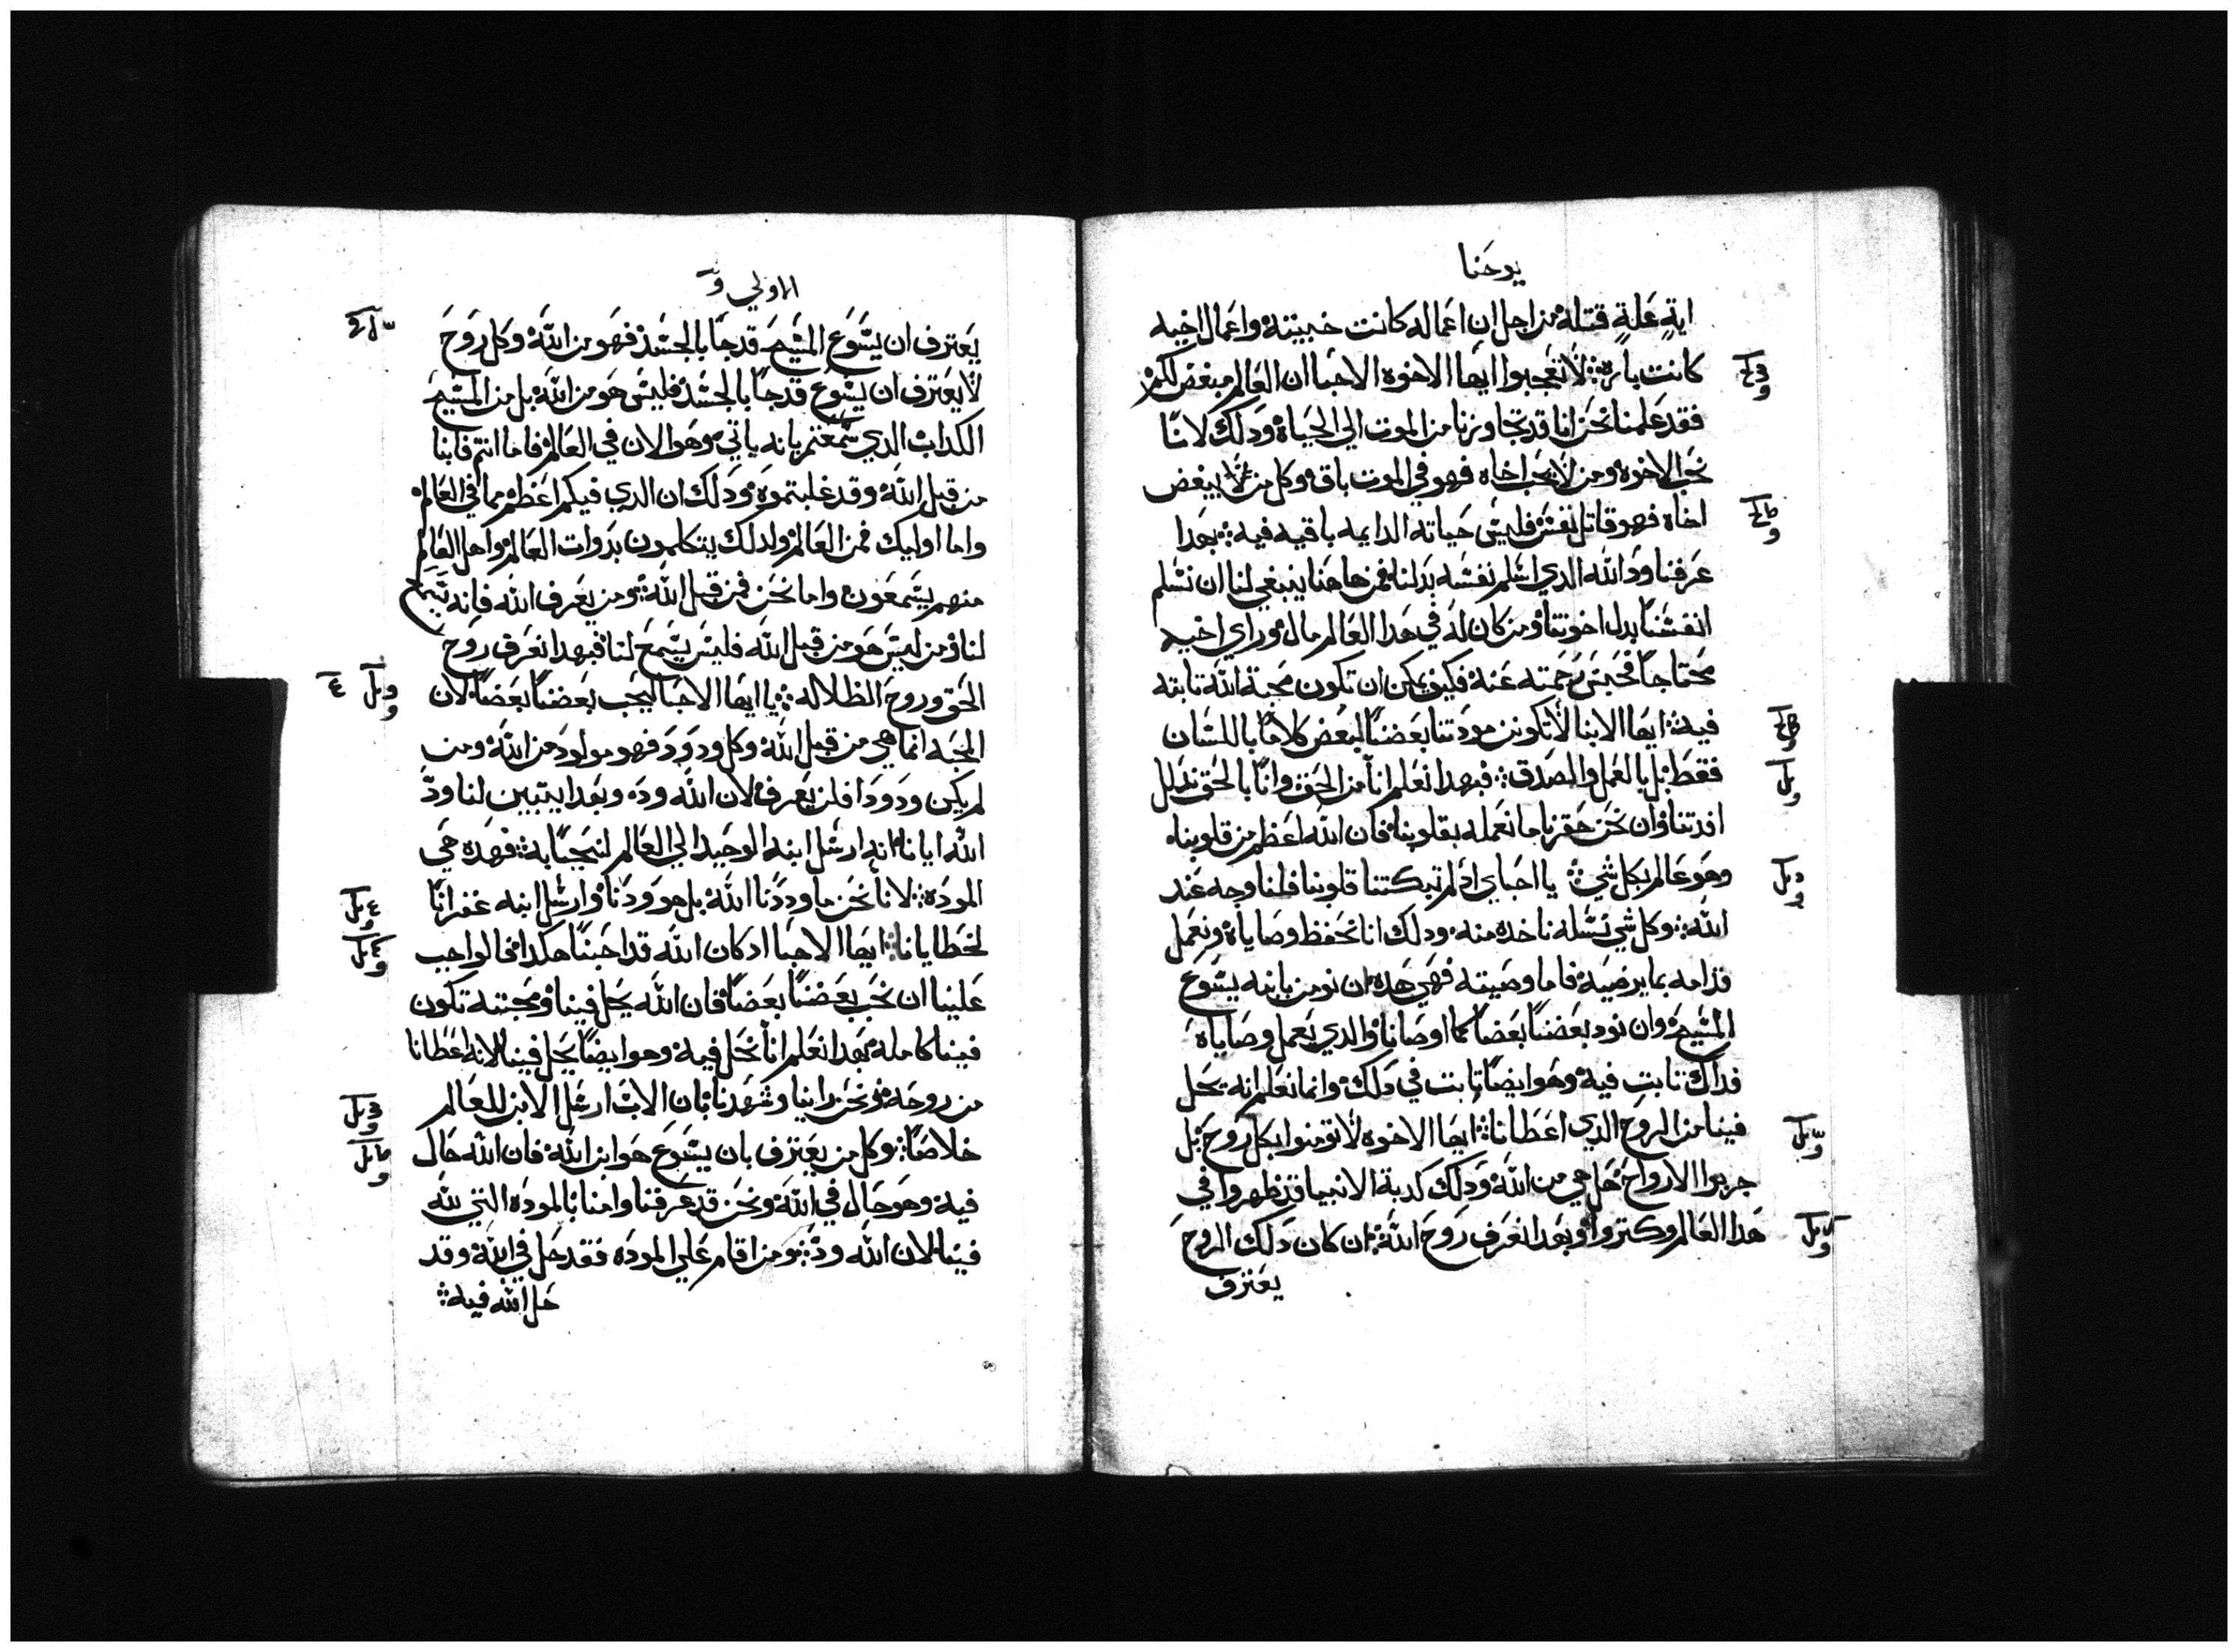 يوحنا
اية علة قتله من اجل ان اعماله كانت خبيثه واعمال اخيه
كانت باره لا تعجبوا ايها الاخوه الاحبا ان العالم مبغض لكم
فقد علمنا نحن انا قد تجاوزنا من الموت الي الحياه ودلك لانا
نحب الاخوه ومن لا يحب اخاه فهو في الموت باق وكل من يبغض
اخاه فهو قاتل نفس فليس حياته الدايمه باقيه فيه بهدا
عرفنا ود الله الدي اسلم نفسه بدلنا فمن هاهنا ينبغي لنا ان نسلم
انفسنا بدل اخوتنا ومن كان له في هدا العالم مال وراي اخيه
محتاجا فحبس رحمته عنه فكيف يمكن ان تكون محبة الله تابته
فيه ايها الابنا لا تكونن مودتنا بعضنا لبعض كلاما باللسان
فقط بل بالعمل والصدق فبهدا نعلم انا من الحق وانا بالحق ندلل
افدتنا وان نحن حقرنا ما نعمله بقلوبنا فان الله اعظم من قلوبنا
وهو عالم بكل شي يا احباي اد لم تبكتنا قلوبنا فلنا وجه عند
الله وكل شي نسله ناخده منه ودلك انا نحفظ وصاياه ونعمل
قدامه بما يرضيه فاما وصيته فهي هده ان نومن بابنه يسوع
المسيح وان نود بعضنا بعضا كما اوصانا والدي يعمل وصاياه
فداك تابت فيه وهو ايضا تابت في دلك وانما نعلم انه يحل
فينا من الروح الدي اعطانا ايها الاخوه لا تومنوا بكل روح بل
جربوا الارواح هل هي من الله ودلك كدبة الانبيا قد ظهروا في
هدا العالم وكتروا وبهدا نعرف روح الله ان كان دلك الروح
يعترف
الاولي
يعترف ان يسوع المسيح قد جا بالجسد فهو من الله وكل روح
لا يعترف ان يسوع قد جا بالجسد فليس هو من الله بل من المسيح
الكداب الدي سمعتم بانه ياتي وهو الان في العالم فاما انتم فابنا
من قبل الله وقد غلبتموه ودلك ان الدي فيكم اعظم مما في العالم
واما اوليك فمن العالم ولدلك يتكلمون بدوات العالم واهل العالم
منهم يسمعون واما نحن فمن قبل الله ومن يعرف الله فانه يسمع
لنا ومن ليس هو من قبل الله فليس يسمع لنا فبهدا نعرف روح
الحق وروح الظلاله يا ايها الاحبا ليحب بعضنا بعضا لان
المحبه انما هي من قبل الله وكل ودود فهو مولود من الله ومن
لم يكن ودودا فلن يعرف لان الله وده وبهدا يتبين لنا ود
الله ايانا انه ارسل ابنه الوحيد الي العالم لنحيا به فهده هي
الموده لانا نحن ما وددنا الله بل هو ودنا وارسل ابنه غفرانا
لخطايانا ايها الاحبا ادكان الله قد احبنا هكدا فالواجب
علينا ان نحب بعضنا بعضا فان الله يحل فينا ومحبته تكون
فينا كامله بهدا نعلم انا نحل فيه وهو ايضا يحل فينا لانه اعطانا
من روحه ونحن راينا وشهدنا بان الاب ارسل الابن للعالم
خلاصا وكل من يعترف بان يسوع هو ابن الله فان الله حال
فيه وهو حال في الله ونحن قد عرفنا وامنا بالموده التي لله
فينا لان الله ود ومن اقام علي الموده فقد حل في الله وقد
حل الله فيه